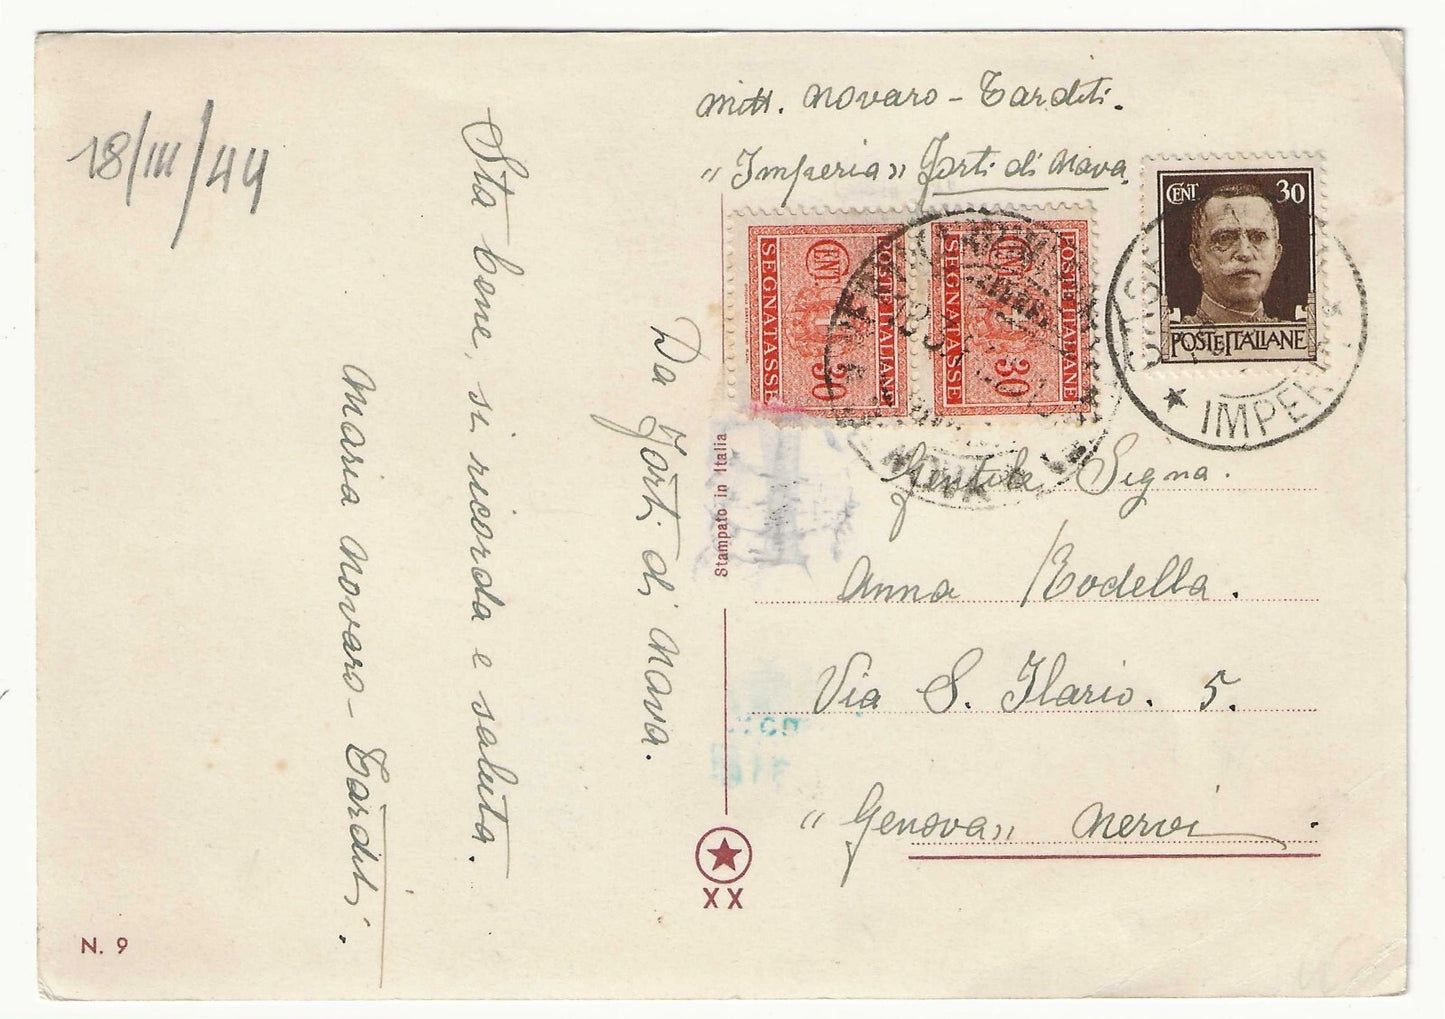 18/III/44
mitt. Novaro - Tarditi.
"Imperia" Forti di Nava.
CENT 30
POSTE ITALIANE
POSTE ITALIANE
SEGNATASSE
CENT 30
POSTE ITALIANE
SEGNATASSE
CENT 30
IMPERIA
Da Forti di Nava.
Sta bene, si ricorda e saluta.
Maria Novaro - Tarditi.
Stampato in Italia
Gentile Signa.
Anna Rodella.
Via S. Ilario. 5.
"Genova" Nervi.
XX
N. 9